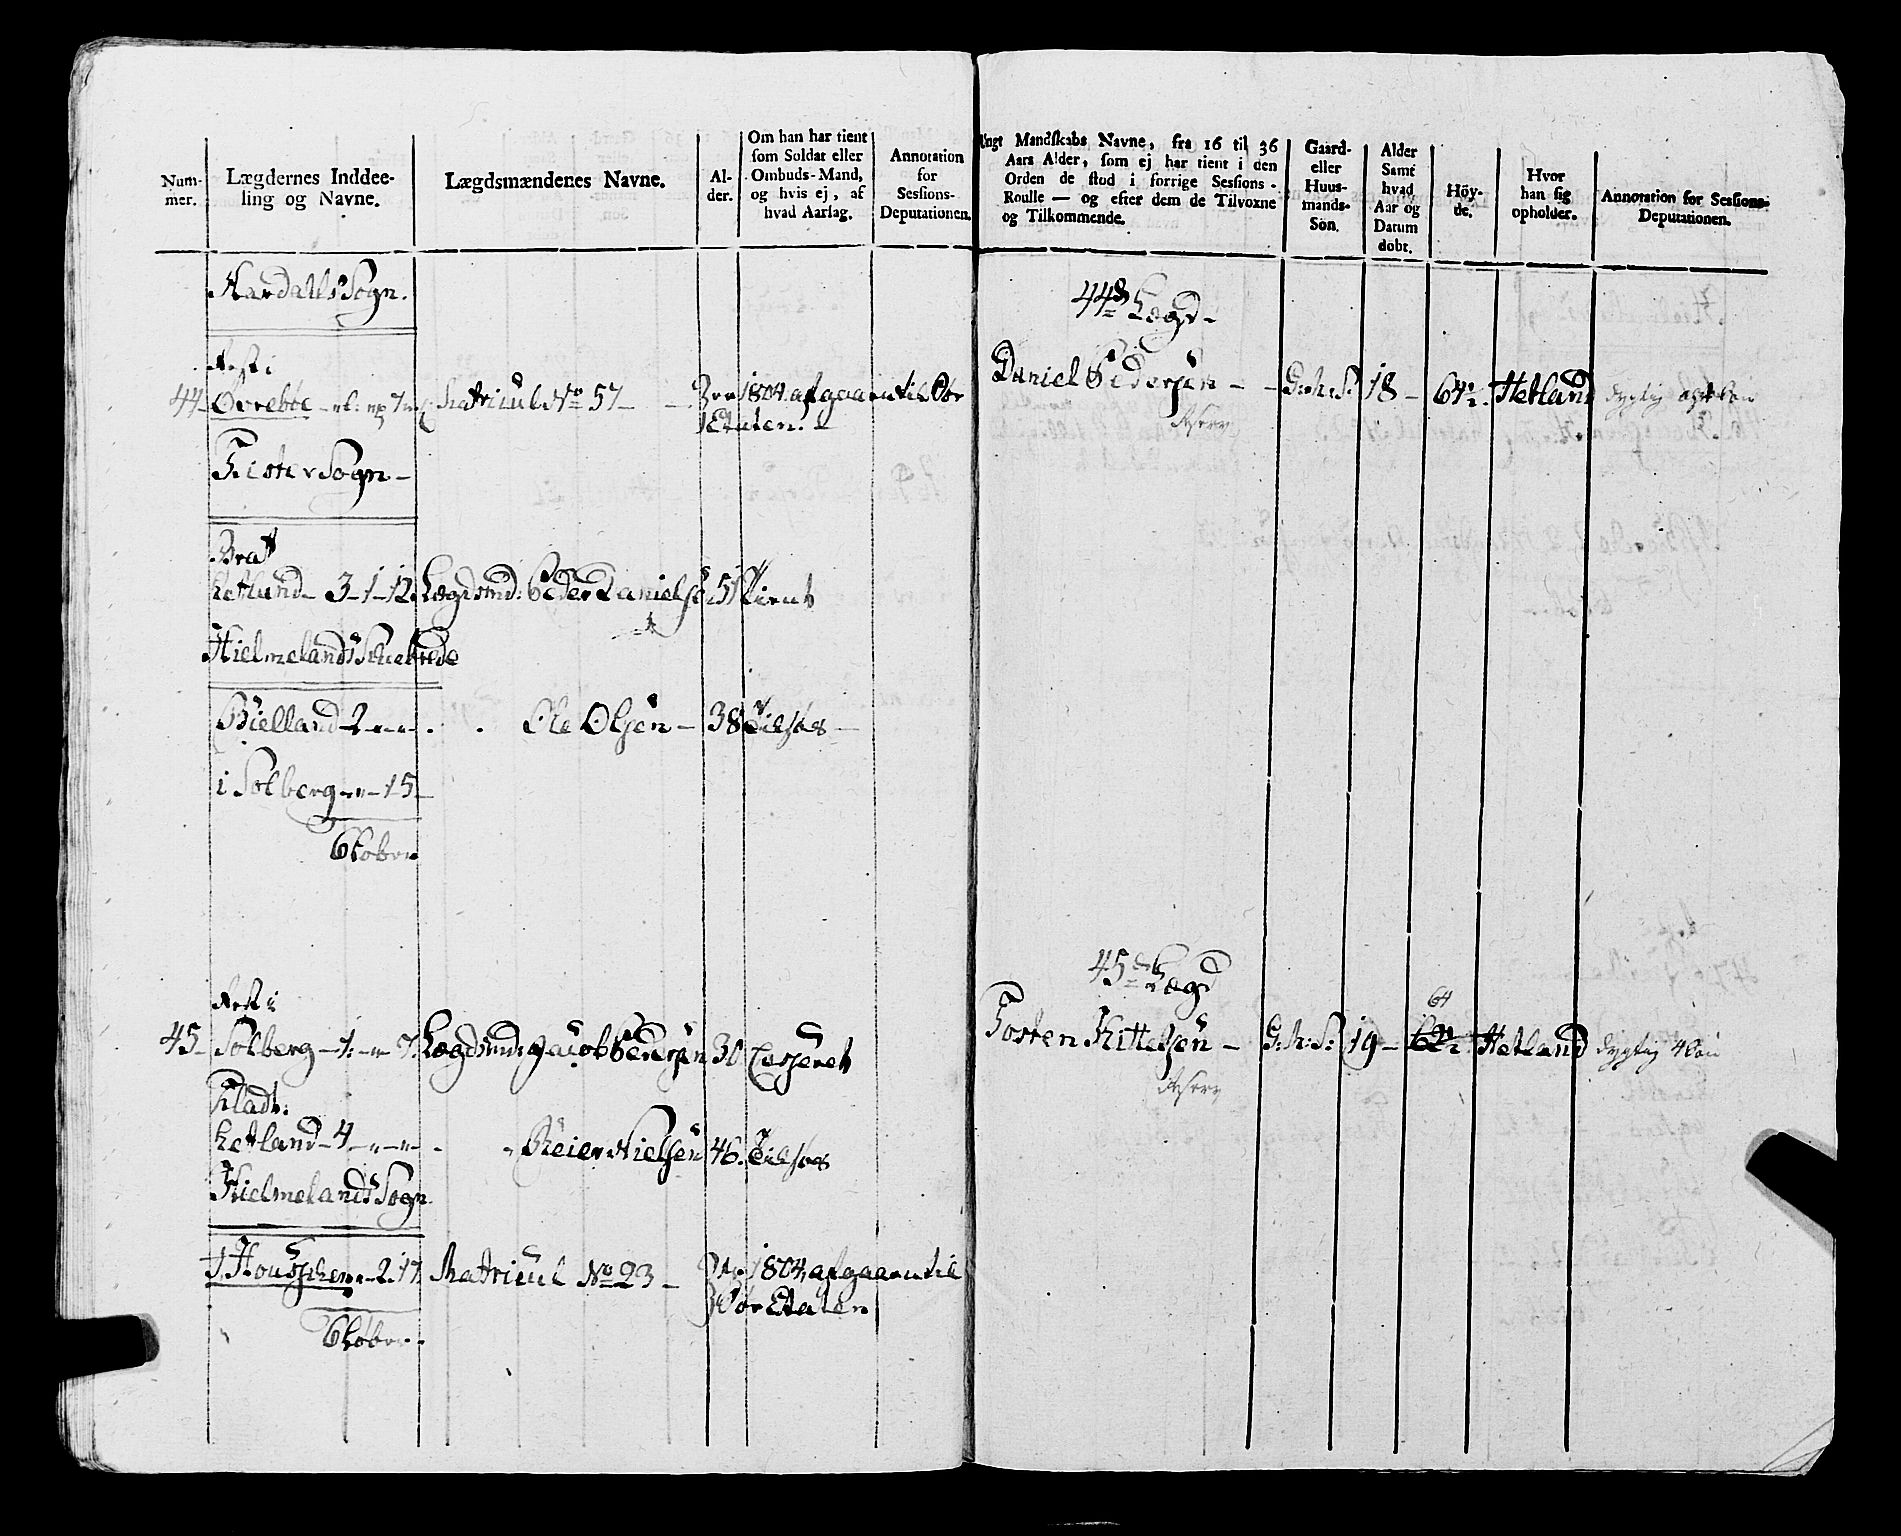 Num-
mer.
Lægdernes Inddee-
ling og Navne.
Lægdsmændenes Navne.
Al-
der.
Om han har tient
som Soldat eller
Ombuds-Mand,
og hvis ej, af
hvad Aarsag.
Annotation
for
Sessions-
Deputationen.
Aardahls Sogn.
Rest i
44 Øvrebøe
Matricul No 57
1804 afgaaen til
Etaten.
Fister Sogn
Brat
hetland 3-1-12 Lægdsmd: Peder Danielsen 51 Tient
Hielmelands Skibrede
Bielland 2 Ole Olsen 38 Tilsøs
i Solberg 15
6 Løber
Rest i
45 Solberg 1 Lægdsmd: Jacob Pedersen 30 Casseret
Kladt:
hetland 4 Reier Nielsen 46 Tilsøs
Hielmelands Sogn
2. 17 Matricul No 23 1804 afgaaen til
Etaten
6 Løber
Ungt Mandskabs Navne, fra 16 til 36
Aars Alder, som ej har tient i den
Orden de stod i forrige Sessions-
Roulle — og efter dem de Tilvoxne
og Tilkommende.
Gaard-
eller
Huus-
mands-
Søn.
Alder
Samt
hvad
Aar og
Datum
døbt.
Höy-
de.
Hvor
han sig
opholder.
Annotation for Sessions-
Deputationen.
44de Lægd
Daniel Pedersen G.M.S. 18 64½ Hetland dygtig
Reserv
45de Lægd
64
Torsten Kittelsen G.M.S: 19 Hetland dygtig
Reserv